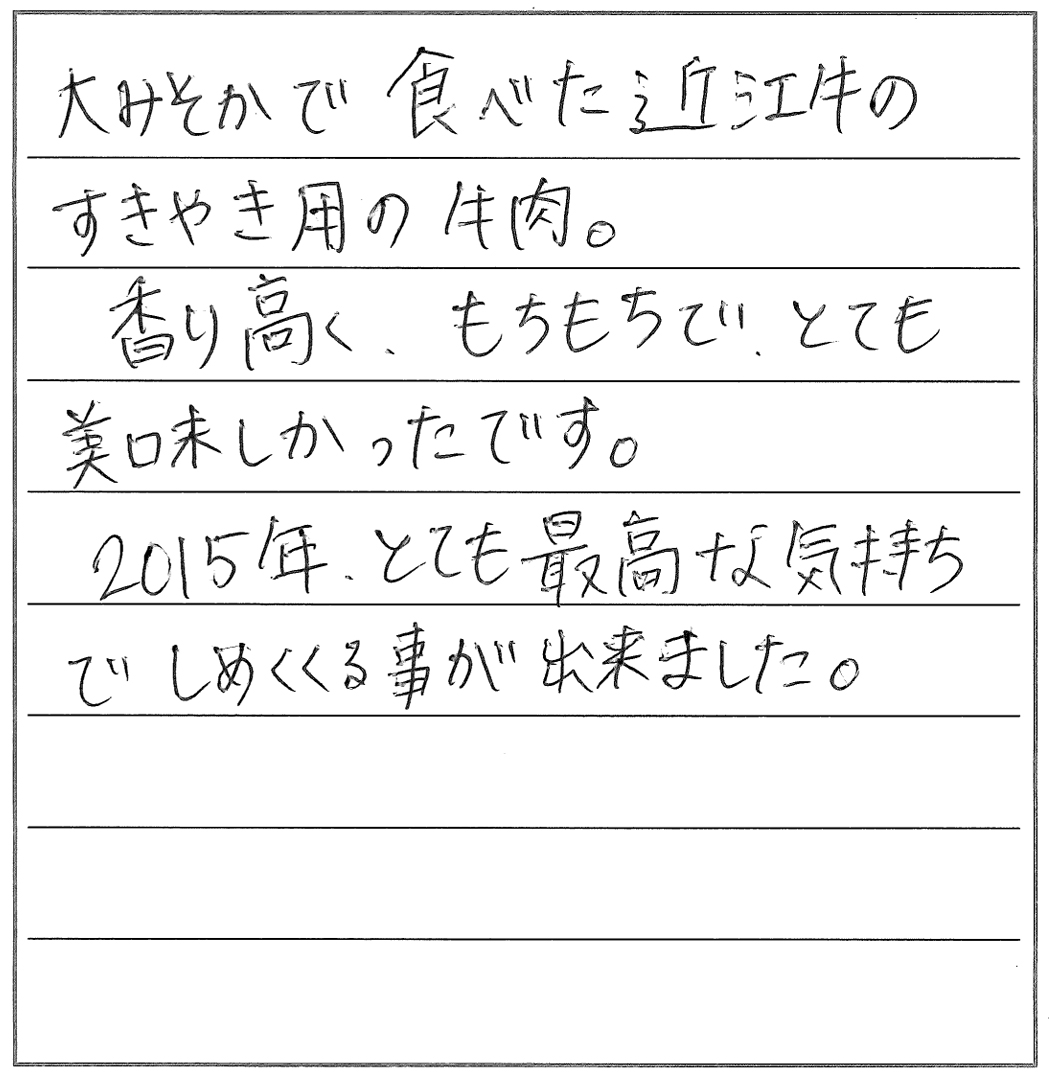 大みそかで食べた近江牛の
すきやき用の牛肉。
香り高く、もちもちで、とても
美味しかったです。
2015年、とても最高な気持ち
でしめくくる事が出来ました。